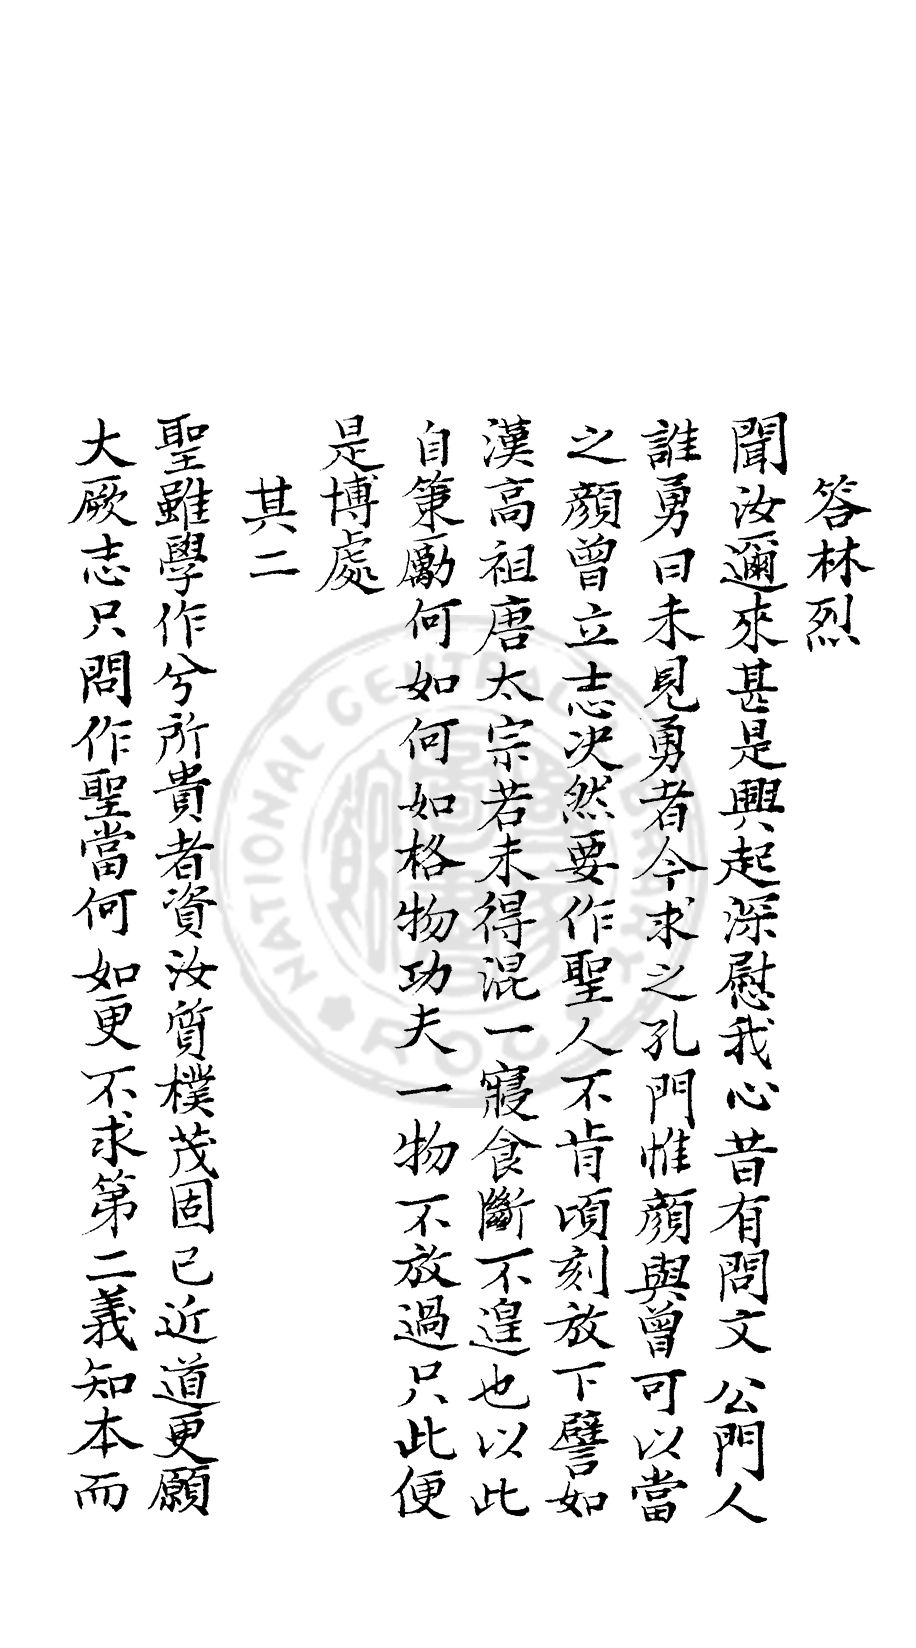 答林烈
聞汝邇來甚是興起深慰我心昔有問文公門人
誰勇曰未見勇者今求之孔門惟顏與曾可以當
之顏曾立志决然要作聖人不肯頃刻放下譬如
漢高祖唐太宗若未得混一寢食斷不遑也以此
自策勵何如何如格物功夫一物不放過只此便
是博處
其二
聖雖學作兮所貴者資汝質樸茂固已近道更願
大厥志只問作聖當何如更不求第二義知本而
NATIONAL CENTRAL LIBRARY
R.O.C.